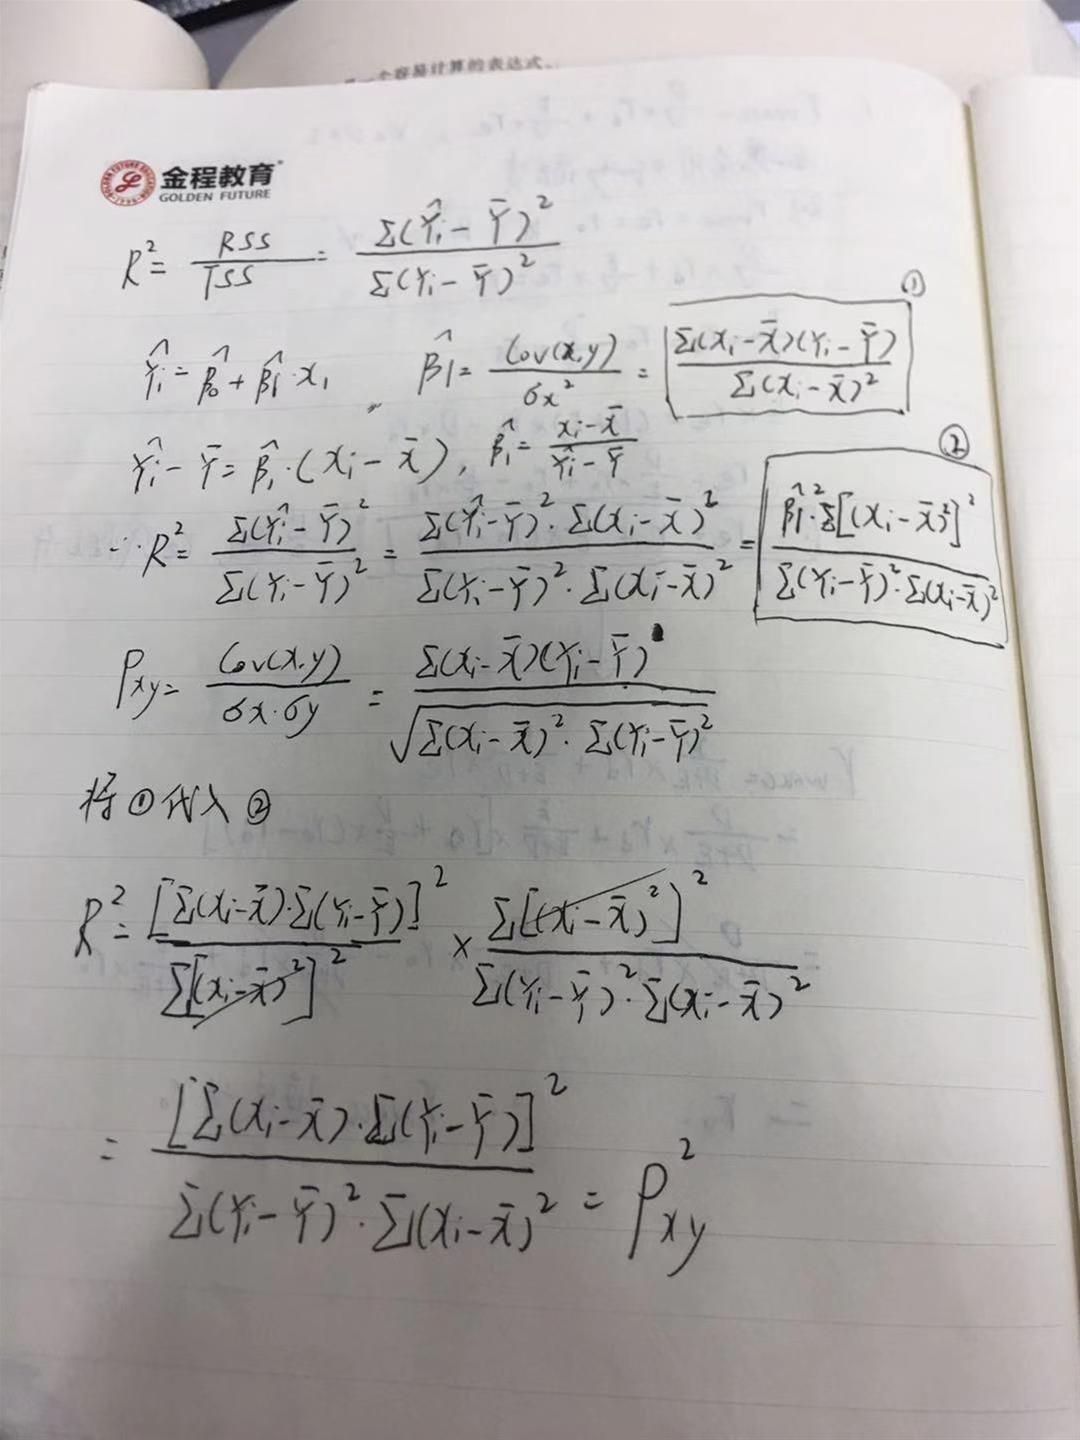 一个容易计算的表达式.
金程教育
GOLDEN FUTURE
R² = RSS/TSS = Σ(Ŷi - Ȳ)²/Σ(Yi - Ȳ)²
①
Ŷi = β̂0 + β̂1·x1 β̂1 = Cov(x,y)/σx² = Σ(xi - x̄)(Yi - Ȳ)/Σ(xi - x̄)²
Ŷi - Ȳ = β̂1·(xi - x̄), β̂1 = xi - x̄/Ŷi - Ȳ
②
∵ R² = Σ(Ŷi - Ȳ)²/Σ(Yi - Ȳ)² = Σ(Ŷi - Ȳ)²·Σ(xi - x̄)²/Σ(Yi - Ȳ)²·Σ(xi - x̄)² = β̂1²·Σ[(xi - x̄)²]²/Σ(Yi - Ȳ)²·Σ(xi - x̄)²
ρxy = Cov(x,y)/σx·σy = Σ(xi - x̄)(Yi - Ȳ)/√Σ(xi - x̄)²·Σ(Yi - Ȳ)²
将①代入②
R² = [Σ(xi - x̄)·Σ(Yi - Ȳ)]²/Σ[(xi - x̄)²]² × Σ[(xi - x̄)²]²/Σ(Yi - Ȳ)²·Σ(xi - x̄)²
= [Σ(xi - x̄)·Σ(Yi - Ȳ)]²/Σ(Yi - Ȳ)²·Σ(xi - x̄)² = ρ²xy